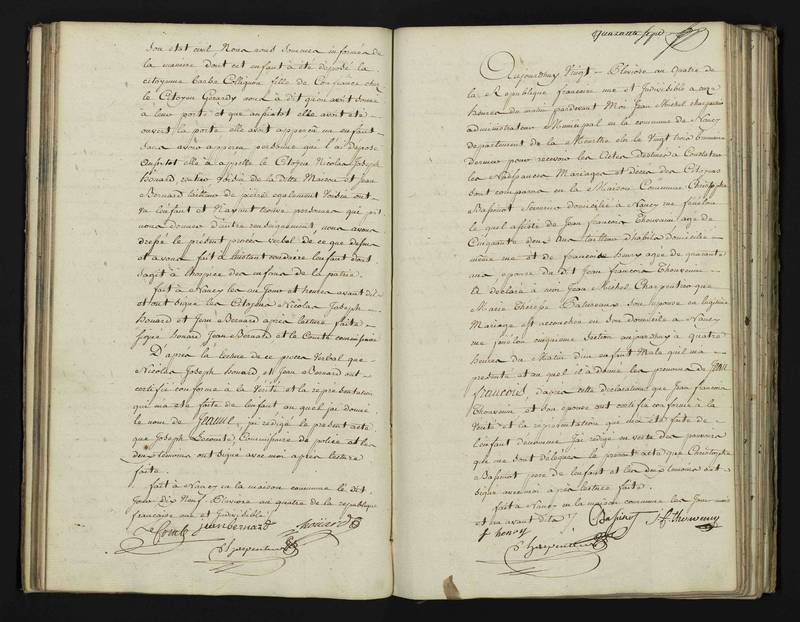 son etat civil, Nous nous sommes informés de
la maniere dont cet enfant à été deposé la
citoyenne barbe Collignon fille de Confiance chez
le Citoyen Gerardy nous à dit qu'on avoit sonné
à leur porte et que aussitot elle avoit été
ouvrir la porte elle avoit apperçu un enfant
sans avoir apperçu personne que l'à deposé
aussitot elle à appellé le Citoyen Nicolas Joseph
honard voisin de la ditte Maison et Jean
Bernard tailleur de pierre egalement Voisin ont
vu l'enfant et N'ayant trouvé personnes qui put
nous donner d'autre renseignement, nous avons
dressé le présent procès verbal de ce que dessus
et avons fait à l'instant conduire l'enfant dont
s'agit à l'hospice des enfans de la patrie.
fait à Nancy les an Jour et heures avant dit
et ont signé les Citoyens Nicolas Joseph
honard et Jean Bernard après lecture faite
signé honard Jean Bernard et le Comte commissaire
D'après la lecture de ce procès Verbal que
Nicolas Joseph honard et Jean Bernard ont
certifié conforme à la Vérité et la représentation
qui m'a été faite de l'enfant au quel j'ai donné
le nom de j'ai rédigé le présent acte
que Joseph Lecomte, Commissaire de police et les
deux temoins ont signé avec moi après lecture
faite
fait à Nancy en la maison commune le dit
Jour dix Neuf Pluviose an quatre de la republique
française une et Indivisible
Comte jean bernard honard
Charpentier
quarante sept
Aujourdhuy Vingt Pluviose an Quatre de
la Republique française une et Indivisible à onze
heures du matin pardevant Moi Jean Michel charpentier
administrateur Municipal en la commune de Nancy
departement de la Meurthe elu le Vingt trois Brumaire
dernier pour recevoir les Actes Destinés à Constater
les Naissances Mariages et Décès des Citoyens
sont comparus en la Maison Commune Christophe
Bassinot domicilié à Nancy rue
le quel assisté de Jean francois Thouvenin agé de
Cinquante deux Ans tailleur d'habits domicilié
même rue et de francoise henry agée de quarante
ans epouse du dit Jean francois Thouvenin
à déclaré à moi Jean Michel Charpentier que
Marie Therese son épouse en légitime
Mariage est accouchée en son domicile à Nancy
rue section aujourdhuy à quatre
heures du Matin d'un enfant Male qu'il m'a
presenté et au quel il a donné les prenoms de Jean
francois, d'après cette déclaration que Jean francois
Thouvenin et son epouse ont certifié conforme à la
Verité et la représentation qui m'a été faite de
l'enfant denommé j'ai rédigé en vertu des pouvoirs
que me sont délégués le present acte que Christophe
Bassinot pere de l'enfant et les deux temoins ont
signé avec moi après lecture faite.
fait à Nancy en la maison commune les Jour mois
et an avant dits
f henry Bassinot J f thouvenin
Charpentier